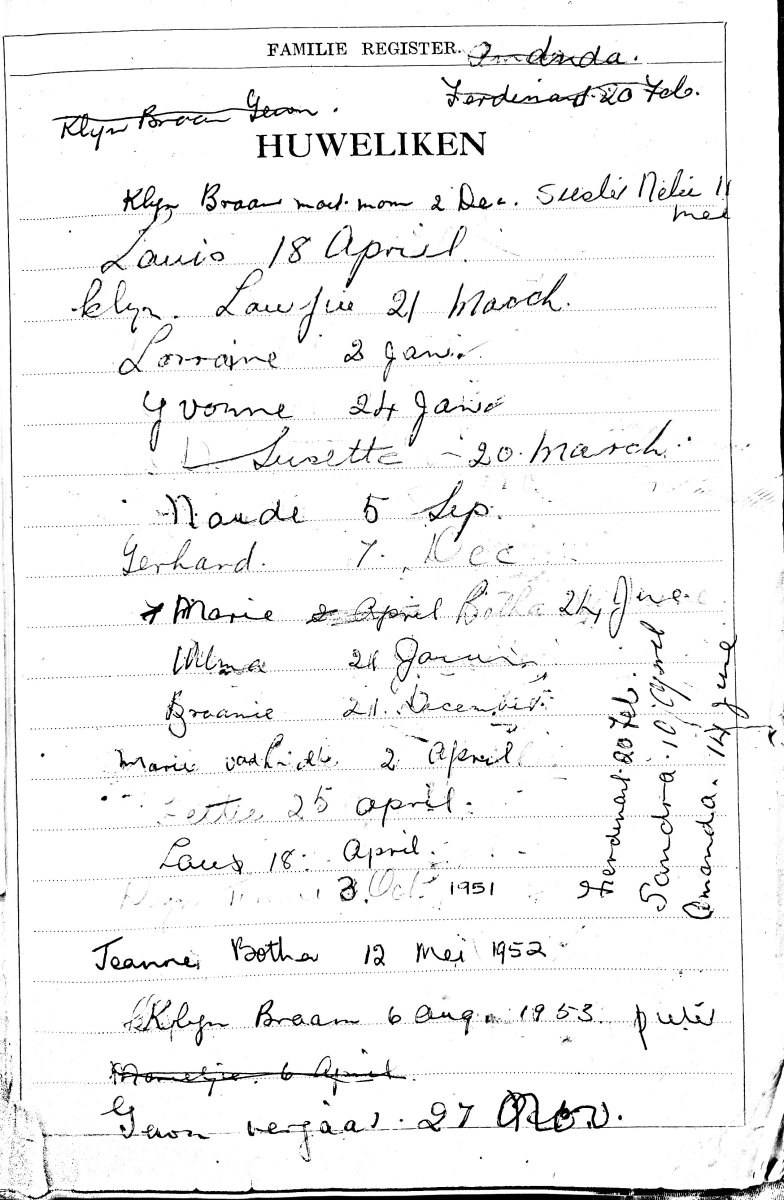 FAMILIE REGISTER.
Amanda.
Ferdinart. 20 Feb.
Klyn Braam Gewon.
HUWELIKEN
Klyn Braam 2 Dec. Susie Nelie 11
mei
Louis 18 April.
klyn. Louffie 21 March.
Lorraine 2 Jan.
Yvonne 24 Jan
Susette - 20. March.
Naude 5 Sep.
Gerhard. 7. Dec
Marie 2 April Botha 24 June
Wilma 21
Braamie 21. December.
Marie 2 April
Lettie 25 april.
Louis 18. April.
3. Oct. 1951
Jeanne Botha 12 Mei 1952
Klyn Braam 6 Aug. 1953.
Marietjie. 6 April.
Gewon verjaar. 27 Nov.
Ferdinart. 20 Feb.
Sandra. 10 April
Amanda. 14 June